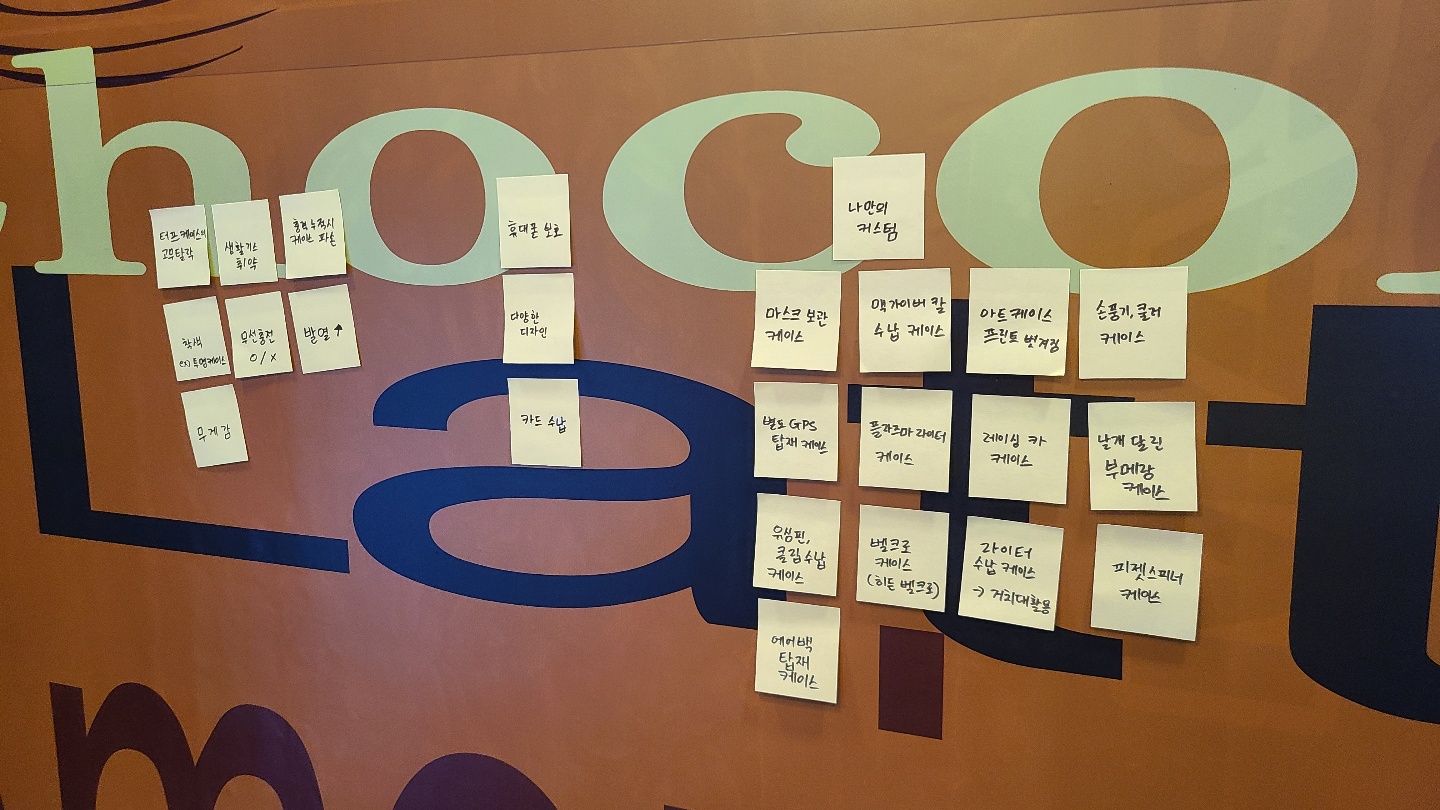 hoco
Latt
me
터프케이스의
고무탈락
생활기스
취약
충격 누적시
케이스 파손
착색
ex) 투명케이스
무선충전
O/X
발열↑
무게감
휴대폰 보호
다양한
디자인
카드 수납
나만의
커스텀
마스크 보관
케이스
맥가이버 칼
수납 케이스
아트케이스
프린트 벗겨짐
손풍기, 쿨러
케이스
별도 GPS
탑재 케이스
플라즈마 라이터
케이스
레이싱 카
케이스
날개 달린
부메랑
케이스
유심핀,
클립 수납
케이스
벨크로
케이스
(히든 벨크로)
라이터
수납 케이스
→ 거치대활용
피젯스피너
케이스
에어백
탑재
케이스